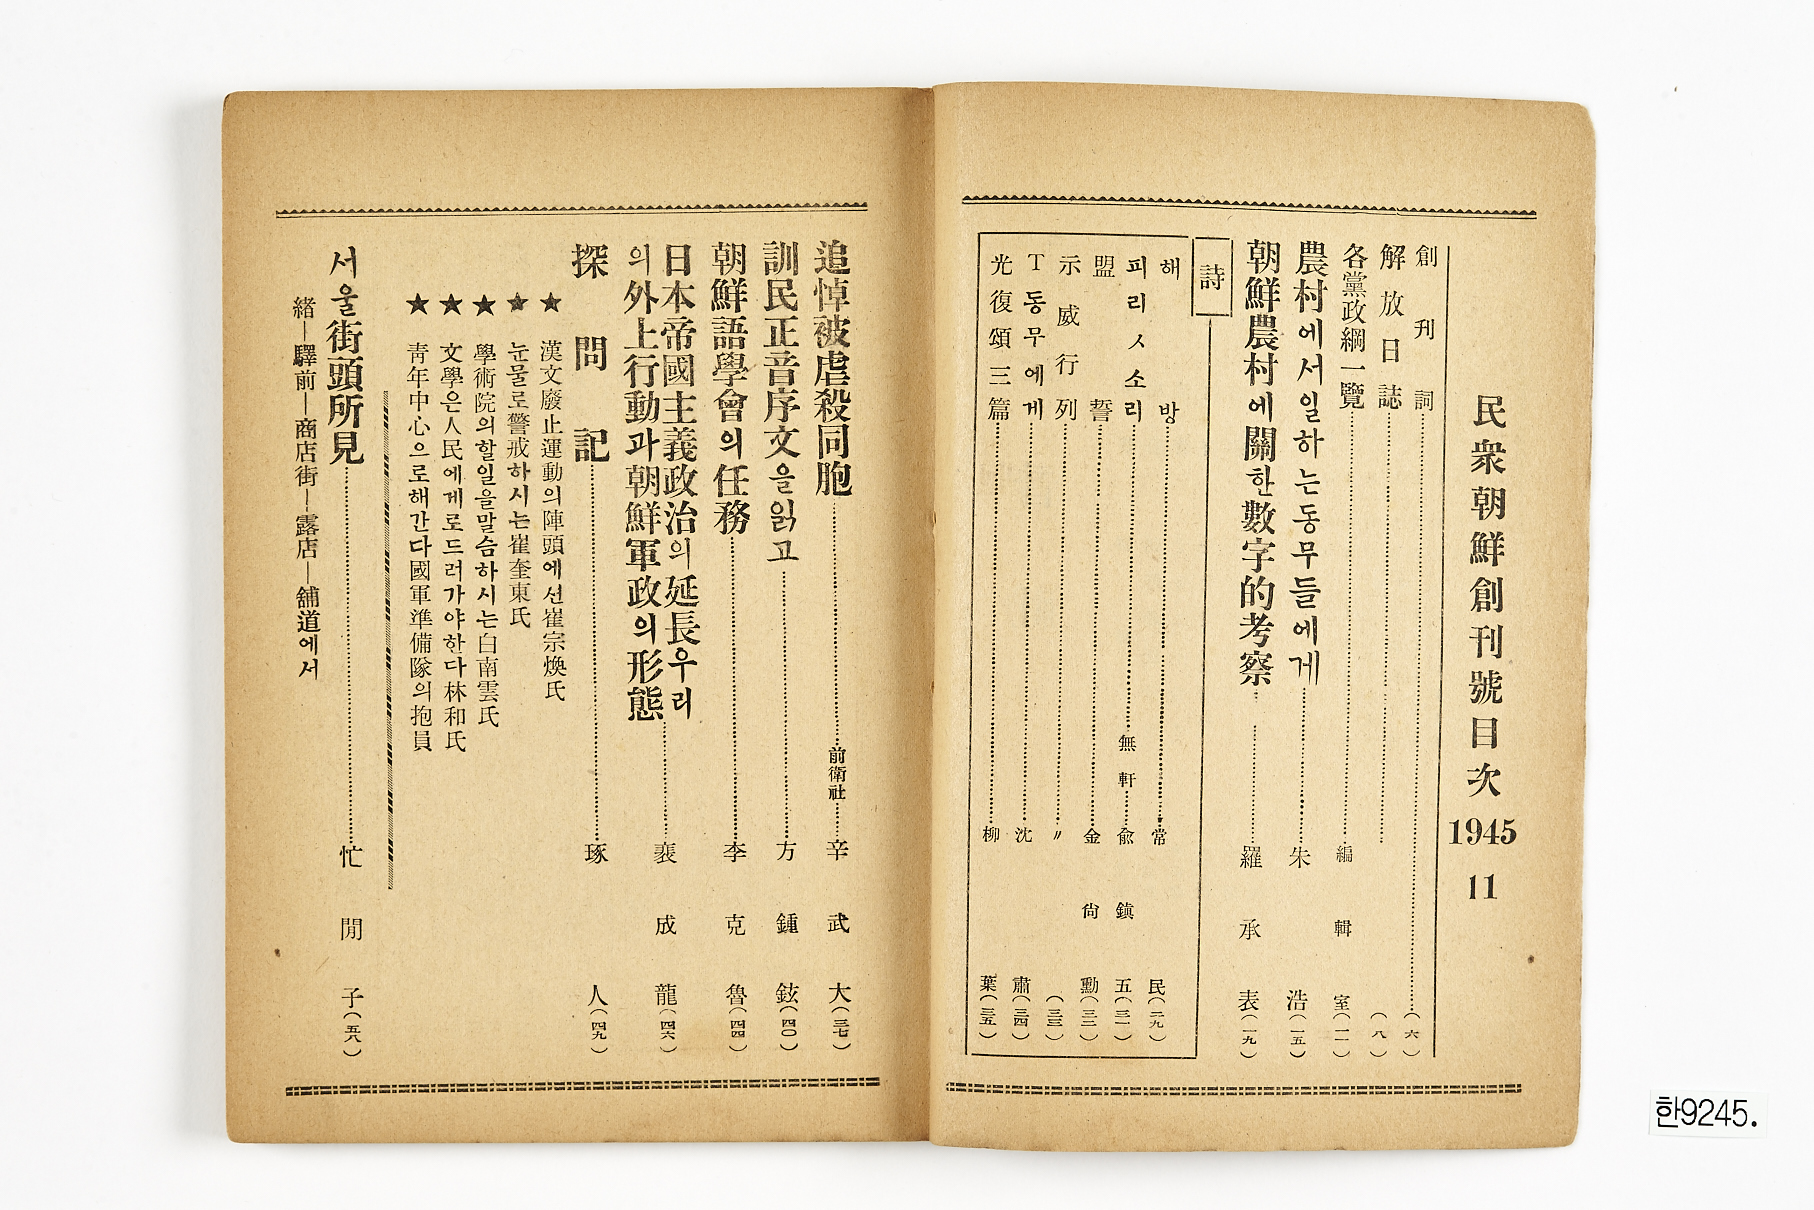 民衆朝鮮創刊號目次 1945 11
創刊詞(六)
解放日誌(八)
各黨政綱一覽 編輯室(一一)
農村에서일하는동무들에게 朱浩(一五)
朝鮮農村에關한數字的考察 羅承表(一九)
詩
해방 常民(二九)
피리ㅅ소리 無軒 兪鎭五(三一)
盟誓 金尙勳(三二)
示威行列 〃(三三)
T동무에게 沈肅(三四)
光復頌三篇 柳葉(三五)
追悼被虐殺同胞 前衛社 辛武大(三七)
訓民正音序文을읽고 方鍾鉉(四〇)
朝鮮語學會의任務 李克魯(四四)
日本帝國主義政治의延長우리
의外上行動과朝鮮軍政의形態 裵成龍(四六)
探問記 琢人(四九)
★漢文廢止運動의陣頭에선崔宗煥氏
★눈물로警戒하시는崔奎東氏
★學術院의할일을말슴하시는白南雲氏
★文學은人民에게로드러가야한다林和氏
★靑年中心으로해간다國軍準備隊의抱員
서울街頭所見 忙閒子(五八)
緖—驛前—商店街—露店—舖道에서
한9245.